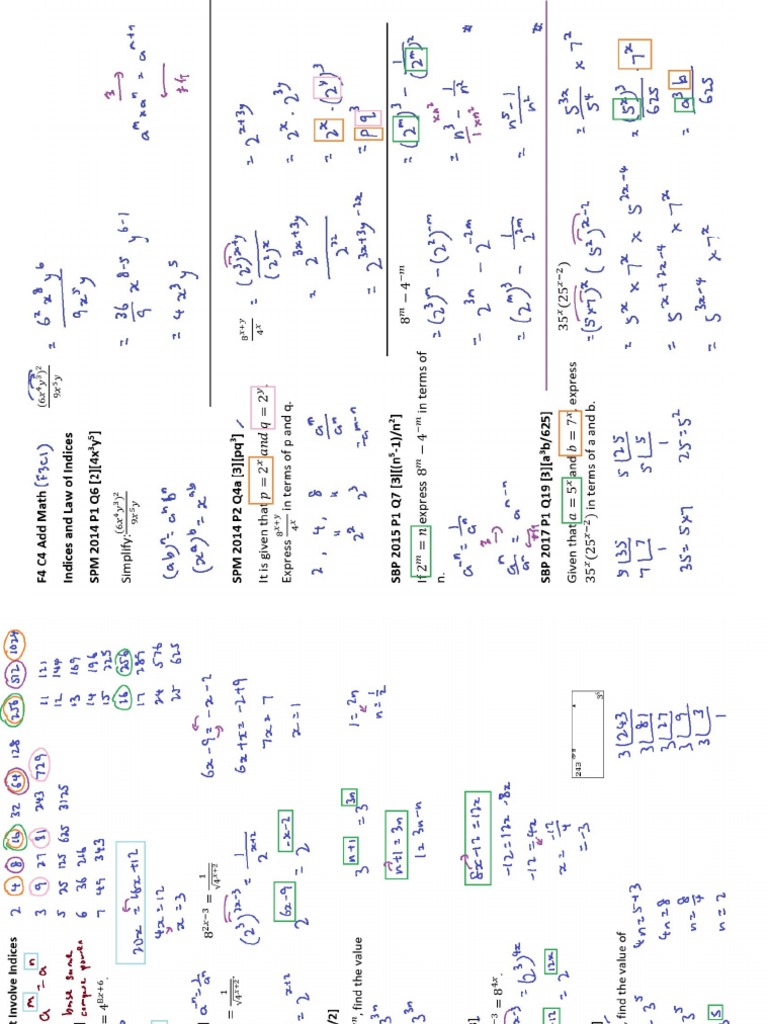 F4 C4 Add Math (F3C1)
Indices and Law of Indices
SPM 2014 P1 Q6 [2][4x³y⁵]
Simplify: (6x⁴y³)²/9x⁵y
(ab)ⁿ = aⁿbⁿ
(xᵃ)ᵇ = xᵃᵇ
(6x⁴y³)²/9x⁵y = 6²x⁸y⁶/9x⁵y
= 36/9 x⁸⁻⁵ y⁶⁻¹
= 4x³y⁵
aᵐxaⁿ = aᵐ⁺ⁿ
SPM 2014 P2 Q4a [3][pq³]
It is given that p = 2ˣ and q = 2ʸ.
Express 8ˣ⁺ʸ/4ˣ in terms of p and q.
2, 4, 8
2² 2³
aᵐ/aⁿ
=aᵐ⁻ⁿ
8ˣ⁺ʸ/4ˣ = (2³)ˣ⁺ʸ/(2²)ˣ
= 2³ˣ⁺³ʸ/2²ˣ
= 2³ˣ⁺³ʸ⁻²ˣ
= 2ˣ⁺³ʸ
= 2ˣ · 2³ʸ
= 2ˣ · (2ʸ)³
= pq³
SBP 2015 P1 Q7 [3][[(n⁵-1)/n²]
If 2ᵐ = n, express 8ᵐ − 4⁻ᵐ in terms of
n.
a⁻ⁿ = 1/aⁿ
8ᵐ − 4⁻ᵐ
= (2³)ᵐ − (2²)⁻ᵐ
= 2³ᵐ − 2⁻²ᵐ
= (2ᵐ)³ − 1/2²ᵐ
= (2ᵐ)³ − 1/(2ᵐ)²
= n³ − 1/n²
= n⁵ − 1/n²
SBP 2017 P1 Q19 [3][a³b/625]
Given that a = 5ˣ and b = 7ˣ, express
35ˣ(25ˣ⁻²) in terms of a and b.
5 |25
5 |5
1
35 = 5x7
25 = 5²
35ˣ(25ˣ⁻²)
= (5x7)ˣ (5²)ˣ⁻²
= 5ˣ x 7ˣ x 5²ˣ⁻⁴
= 5ˣ⁺²ˣ⁻⁴ x 7ˣ
= 5³ˣ⁻⁴ x 7ˣ
= (5ˣ)³/625 · 7ˣ
= a³b/625
t Involve Indices
aᵐ = aⁿ
base same
compare power
= 4⁸ˣ⁺⁶.
2 4 8 16 32 64 128 256 512 1024
3 9 27 81 243 729
5 25 125 625 3125
6 36 216
7 49 343
11 121
12 144
13 169
14 196
15 225
16 256
17 289
24 576
25 625
20x = 16x+12
4x = 12
x = 3
a⁻ⁿ = 1/aⁿ
= 1/√4ˣ⁺².
8²ˣ⁻³ = 1/√4ˣ⁺²
(2³)²ˣ⁻³ = 1/2ˣ⁺²
2⁶ˣ⁻⁹ = 2⁻ˣ⁻²
6x−9 = −x−2
6x+x = −2+9
7x = 7
x = 1
/2]
, find the value
3ⁿ⁺¹ = 3³ⁿ
n+1 = 3n
1 = 3n−n
1 = 2n
n = 1/2
= 8⁴ˣ.
= (2³)⁴ˣ
= 2¹²ˣ
8x−12 = 12x
−12 = 12x−8x
−12 = 4x
x = −12/4
= −3
, find the value of
4n = 5+3
4n = 8
n = 2
243
3 |243
3 |81
3 |27
3 |9
3 |3
1